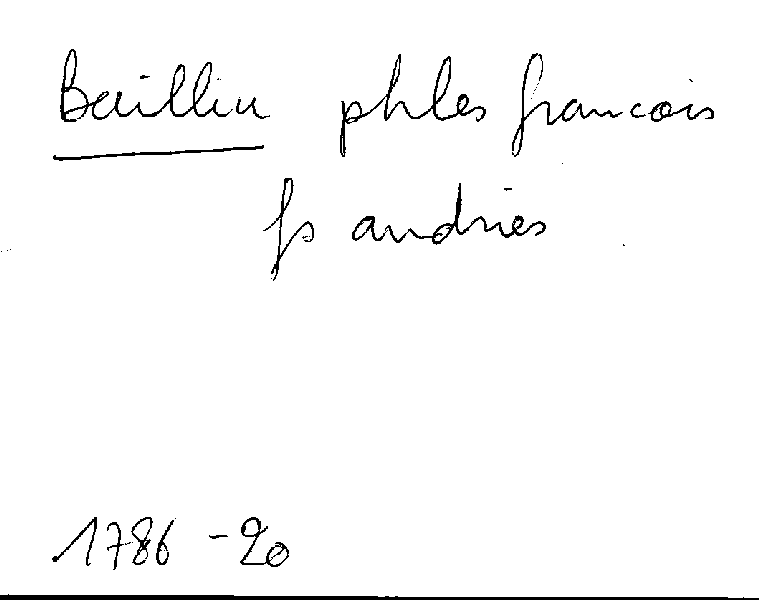 Baillieu phles francois
fs andries
1786 - 20